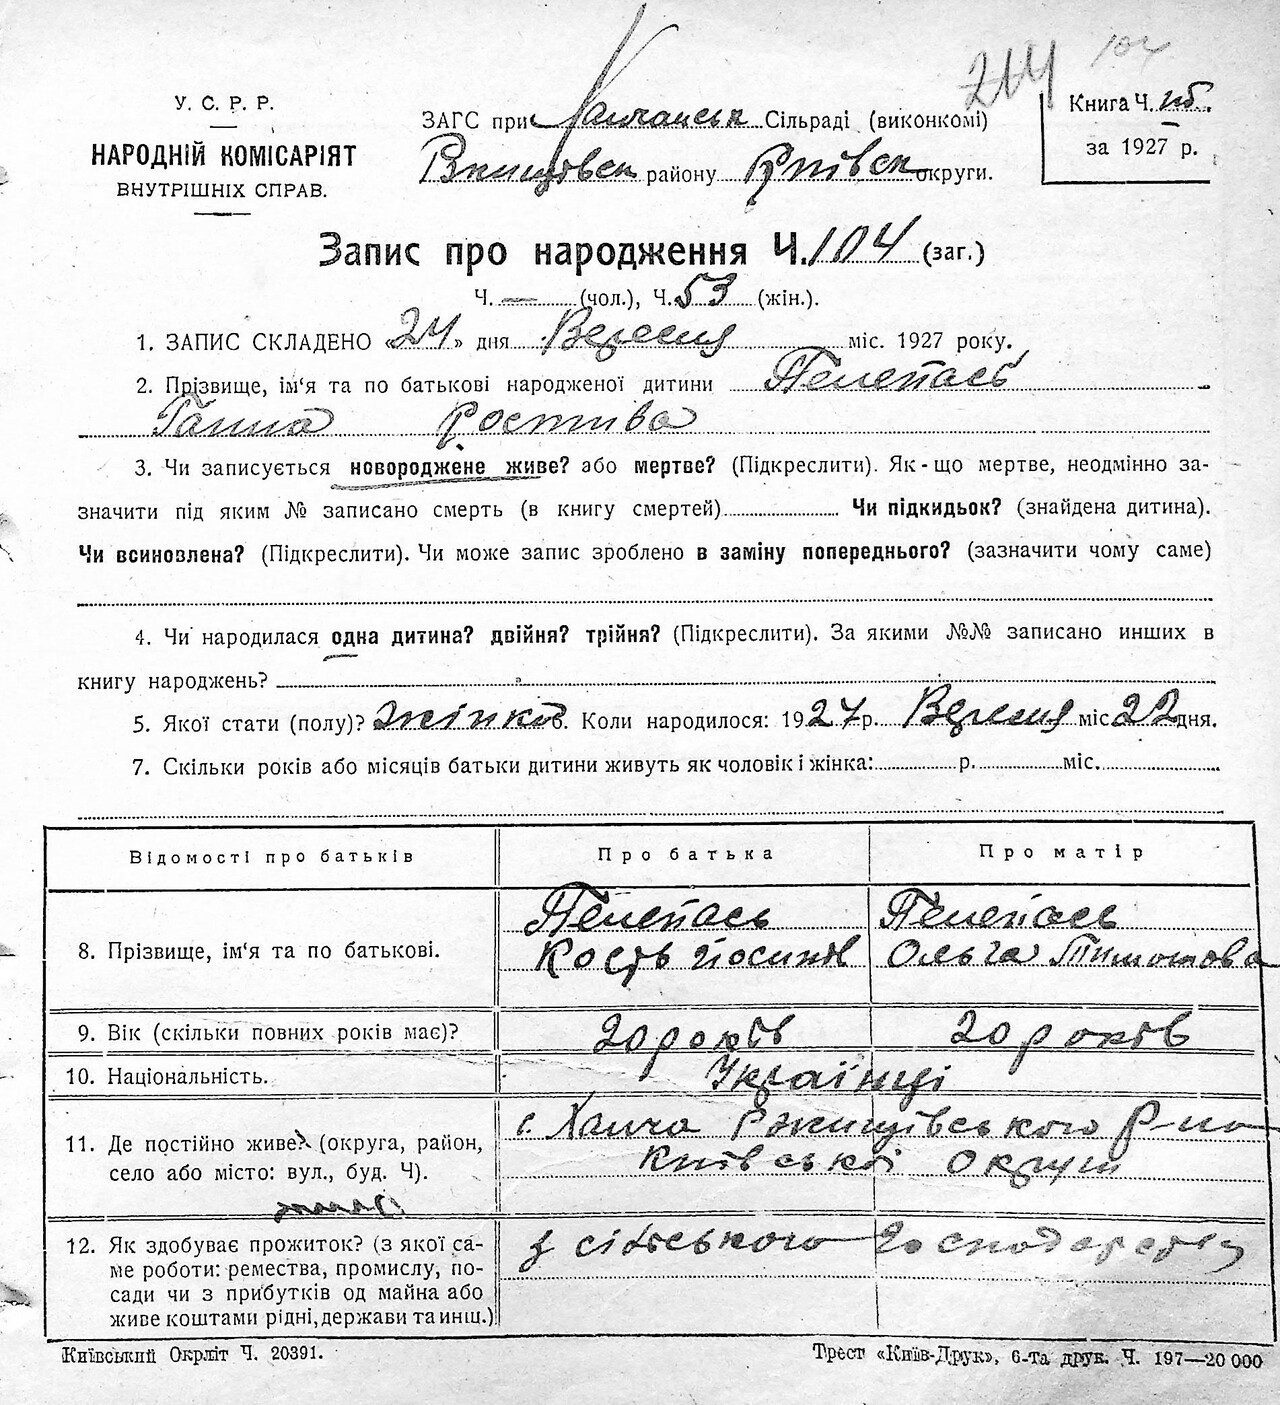 214 104
У. С. Р. Р.
НАРОДНІЙ КОМІСАРІЯТ
ВНУТРІШНІХ СПРАВ.
ЗАГС при Халчанськ Сільраді (виконкомі)
Ржищівськ району Київськ округи.
Книга Ч.
за 1927 р.
Запис про народження Ч. 104 (заг.)
Ч. — (чол.), Ч. 53 (жін.).
1. ЗАПИС СКЛАДЕНО «24» дня Вересня міс. 1927 року.
2. Прізвище, ім‘я та по батькові народженої дитини Пелепась
Ганна Костива
3. Чи записується новороджене живе? або мертве? (Підкреслити). Як-що мертве, неодмінно за-
значити під яким № записано смерть (в книгу смертей) Чи підкидьок? (знайдена дитина).
Чи всиновлена? (Підкреслити). Чи може запис зроблено в заміну попереднього? (зазначити чому саме)
4. Чи народилася одна дитина? двійня? трійня? (Підкреслити). За якими №№ записано инших в
книгу народжень?
5. Якої стати (полу)? жінков. Коли народилося: 1927 р. Вересня міс 22 дня.
7. Скільки років або місяців батьки дитини живуть як чоловік і жінка: р. міс.
Відомості про батьків Про батька Про матір
8. Прізвище, ім‘я та по батькові.
Пелепась Пелепась
Кость Йосипів Ольга Тимошова
9. Вік (скільки повних років має)? 20 років 20 років
10. Національність. Українці
11. Де постійно живе? (округа, район,
село або місто: вул., буд. Ч).
с. Халча Ржищівського Р-но
Київської Округи
12. Як здобуває прожиток? (з якої са-
ме роботи: ремества, промислу, по-
сади чи з прибутків од майна або
живе коштами рідні, держави та инш.)
з сільського господарства
Київський Окрліт Ч. 20391.
Трест «Київ-Друк», 6-та друк. Ч. 197—20 000